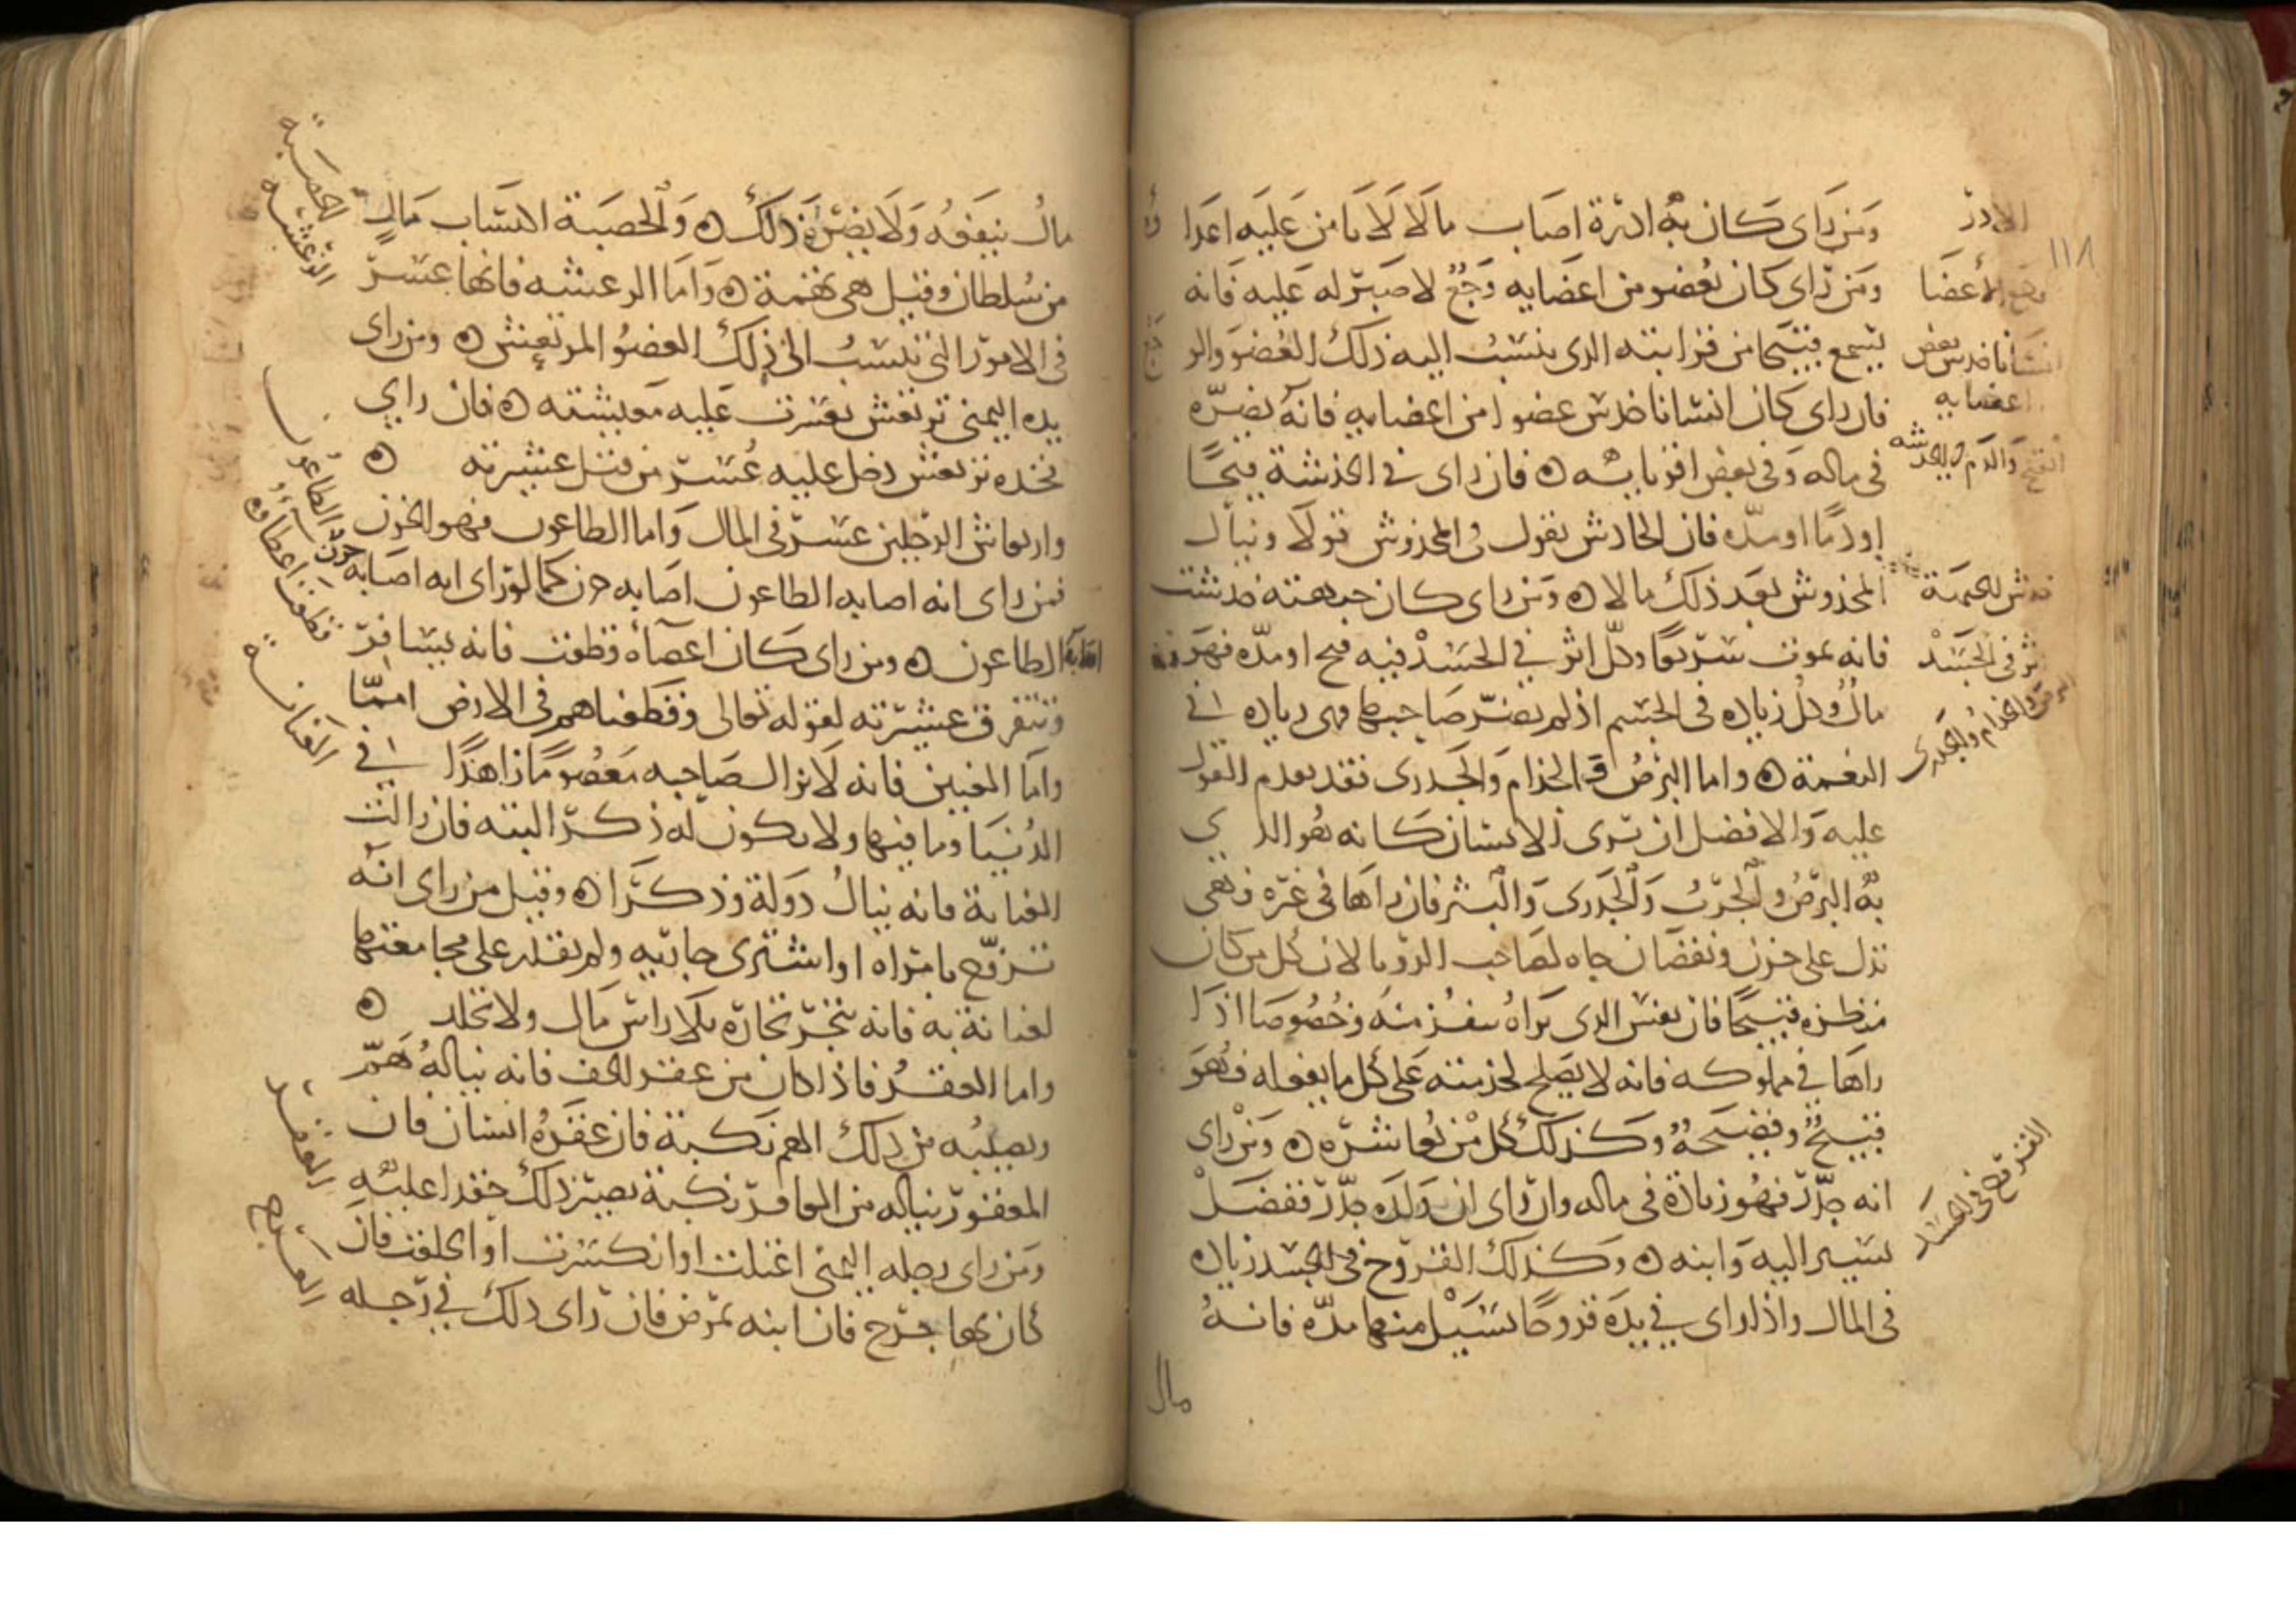 ومن رای كان به ادرة اصاب مالا لا يامن عليه اعدا
ومن رای كان بعضو من اعضايه وجع لا صبر له عليه فانه
يسمع قبيحا من قرابته الدى ينسب اليه ذلك العضو والو
فان رای كان انسانا خدش عضوا من اعضايه فانه يضره
فى ماله وفى بعض اقربايه ه فان رای فى الخدشة قيحا
او دما او مده فان الخادش يقول فى المخدوش قولا وينال
المخدوش بعد ذلك مالا ه ومن رای كان جبهته خدشت
فانه يموت سريعا وكل اثر فى الجسد فيه قيح او مده فهو
مال وكل زياده فى الجسم اذا لم تضر صاحبها فهى زياده فى
النعمة ه واما البرص والجذام والجدرى فقد تقدم القول
عليه والافضل ان ترى الانسان كانه هو الدى
به البرص والجرب والجدرى والبثر فان راها فى غيره فهى
تدل على حزن ونقصان جاه لصاحب الرويا لان كل من كان
منظره قبيحا فان نفس الدى يراه تنفر منه وخصوصا اذا
راها فى مملوكه فانه لا يصلح لخدمته على كل ما يفعله فهو
قبيح وفضيحة وكذلك كل من يعاشره ه ومن رای
انه جدر فهو زيادة فى ماله وان رای ان ولده جدر ففضل
يسير اليه وابنه ه وكذلك القروح فى الجسد زياده
فى المال واذا رای فى يده قروحا تسيل منها مده فانه
مال
الادر
١١٨
وجع الأعضا
انسانا خدش بعض
اعضايه
القيح والدم فى الخدشه
خدش الجبهة
اثر فى الجسد
البرص والجذام والجدرى
القروح فى الجسد
مال ينفقه ولا يضره ذلك ه والحصبة اكتساب مال
من سلطان وقيل هى تهمة ه واما الرعشه فانها عسر
فى الامور التى تنسب الى ذلك العضو المرتعش ه ومن رای
يده اليمنى ترتعش تعسرت عليه معيشته ه فان رای
فخده ترتعش دخل عليه عسر من قبل عشيرته ه
وارتعاش الرجلين عسر فى المال واما الطاعون فهو الحزن
فمن رای انه اصابه الطاعون اصابه حزن كما لو رای انه اصابه حزن
اصابه الطاعون ه ومن رای كان اعضاه قطعت فانه يسافر
وتتفرق عشيرته لقوله تعالى وقطعناهم فى الارض امما
واما العنين فانه لا يزال صاحبه معصوما زاهدا فى
الدنيا وما فيها ولا يكون له ذكر البته فان زالت
العنانة فانه ينال دولة وذكرا ه وقيل من رای انه
تزوج بامراه او اشترى جاريه ولم يقدر على مجامعتها
لعنانة به فانه يتجر تجاره بلا راس مال ولا تجلد ه
واما العقر فاذا كان من عقر الخف فانه يناله هم
ويصيبه من ذلك الهم نكبة فان عقره انسان فان
المعقور يناله من العاقر نكبة يصير ذلك حقدا عليه
ومن رای رجله اليمنى اعتلت او انكسرت او انخلعت فان
كان بها جرح فان ابنه يمرض فان رای ذلك فى رجله
الحصبة
الرعشه
الطاعون
قطعت اعضاوه
العنانة
العقر